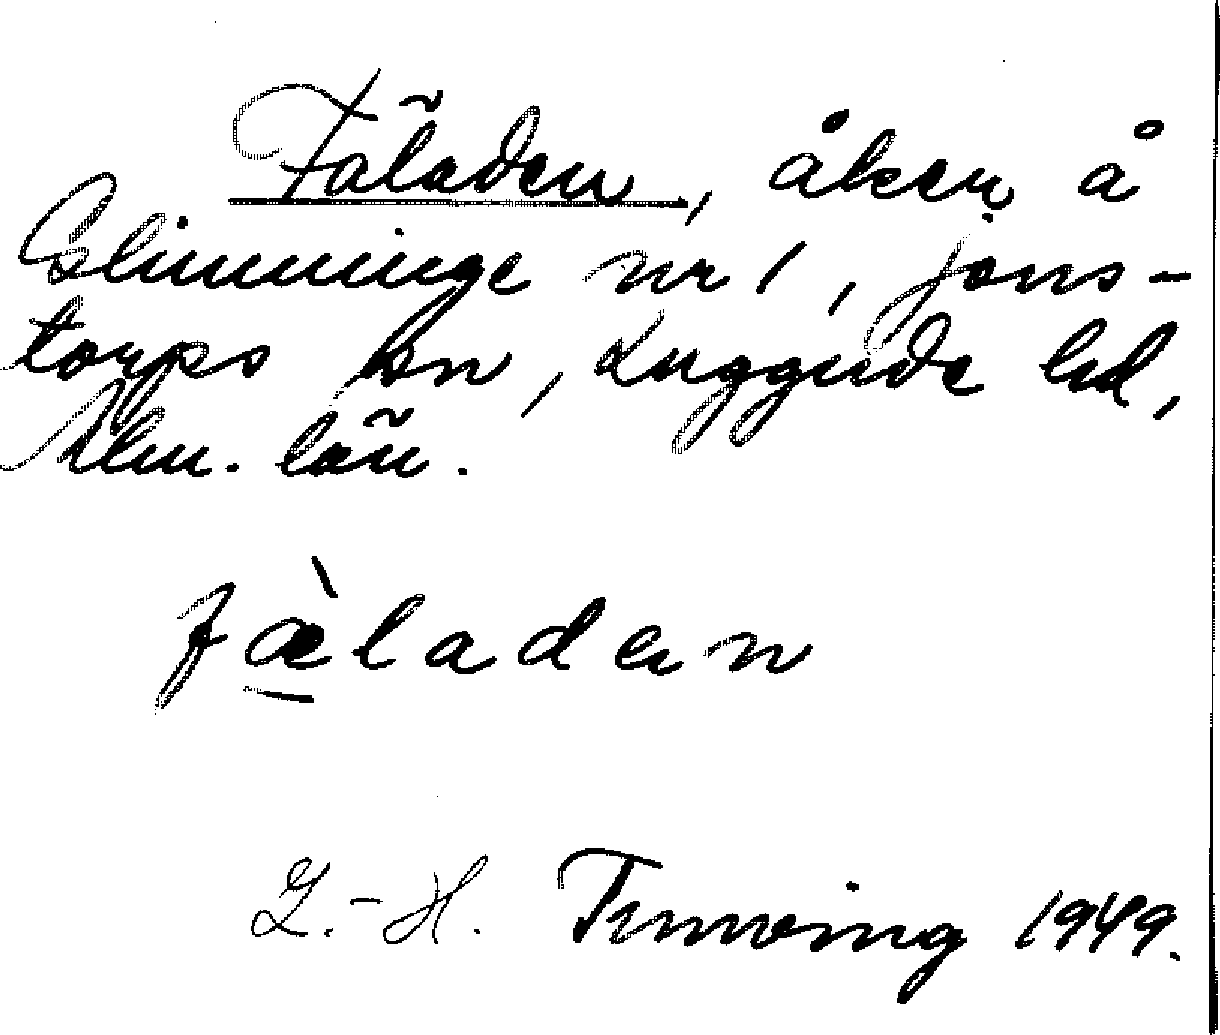 Fäladen, åker å
Glimminge nr 1, Jons-
torps sn, Luggude hd,
Mlm. län.
fæ̀laden
L.-H. Tunving 1949.